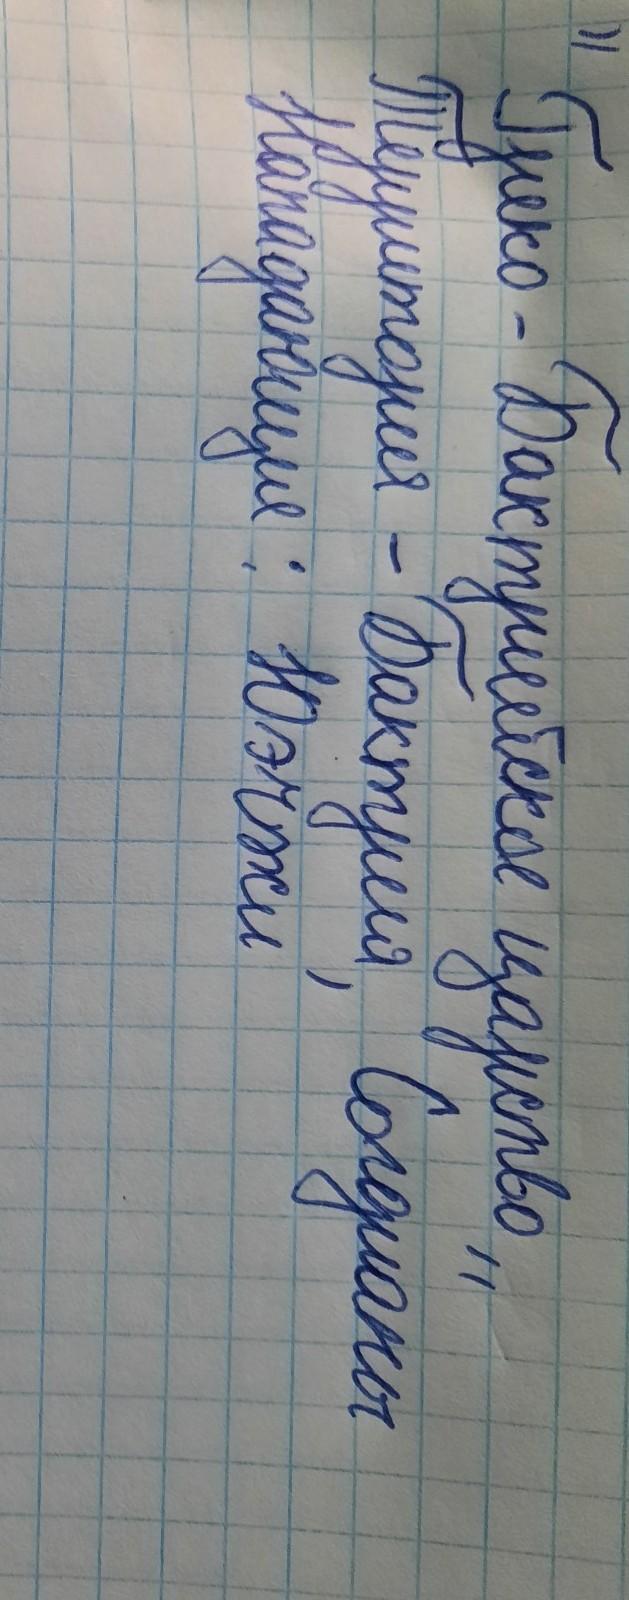 "Греко - Бактрийское царство"
Территория - Бактрия, Согдианы
Нападающие: Юэчжи